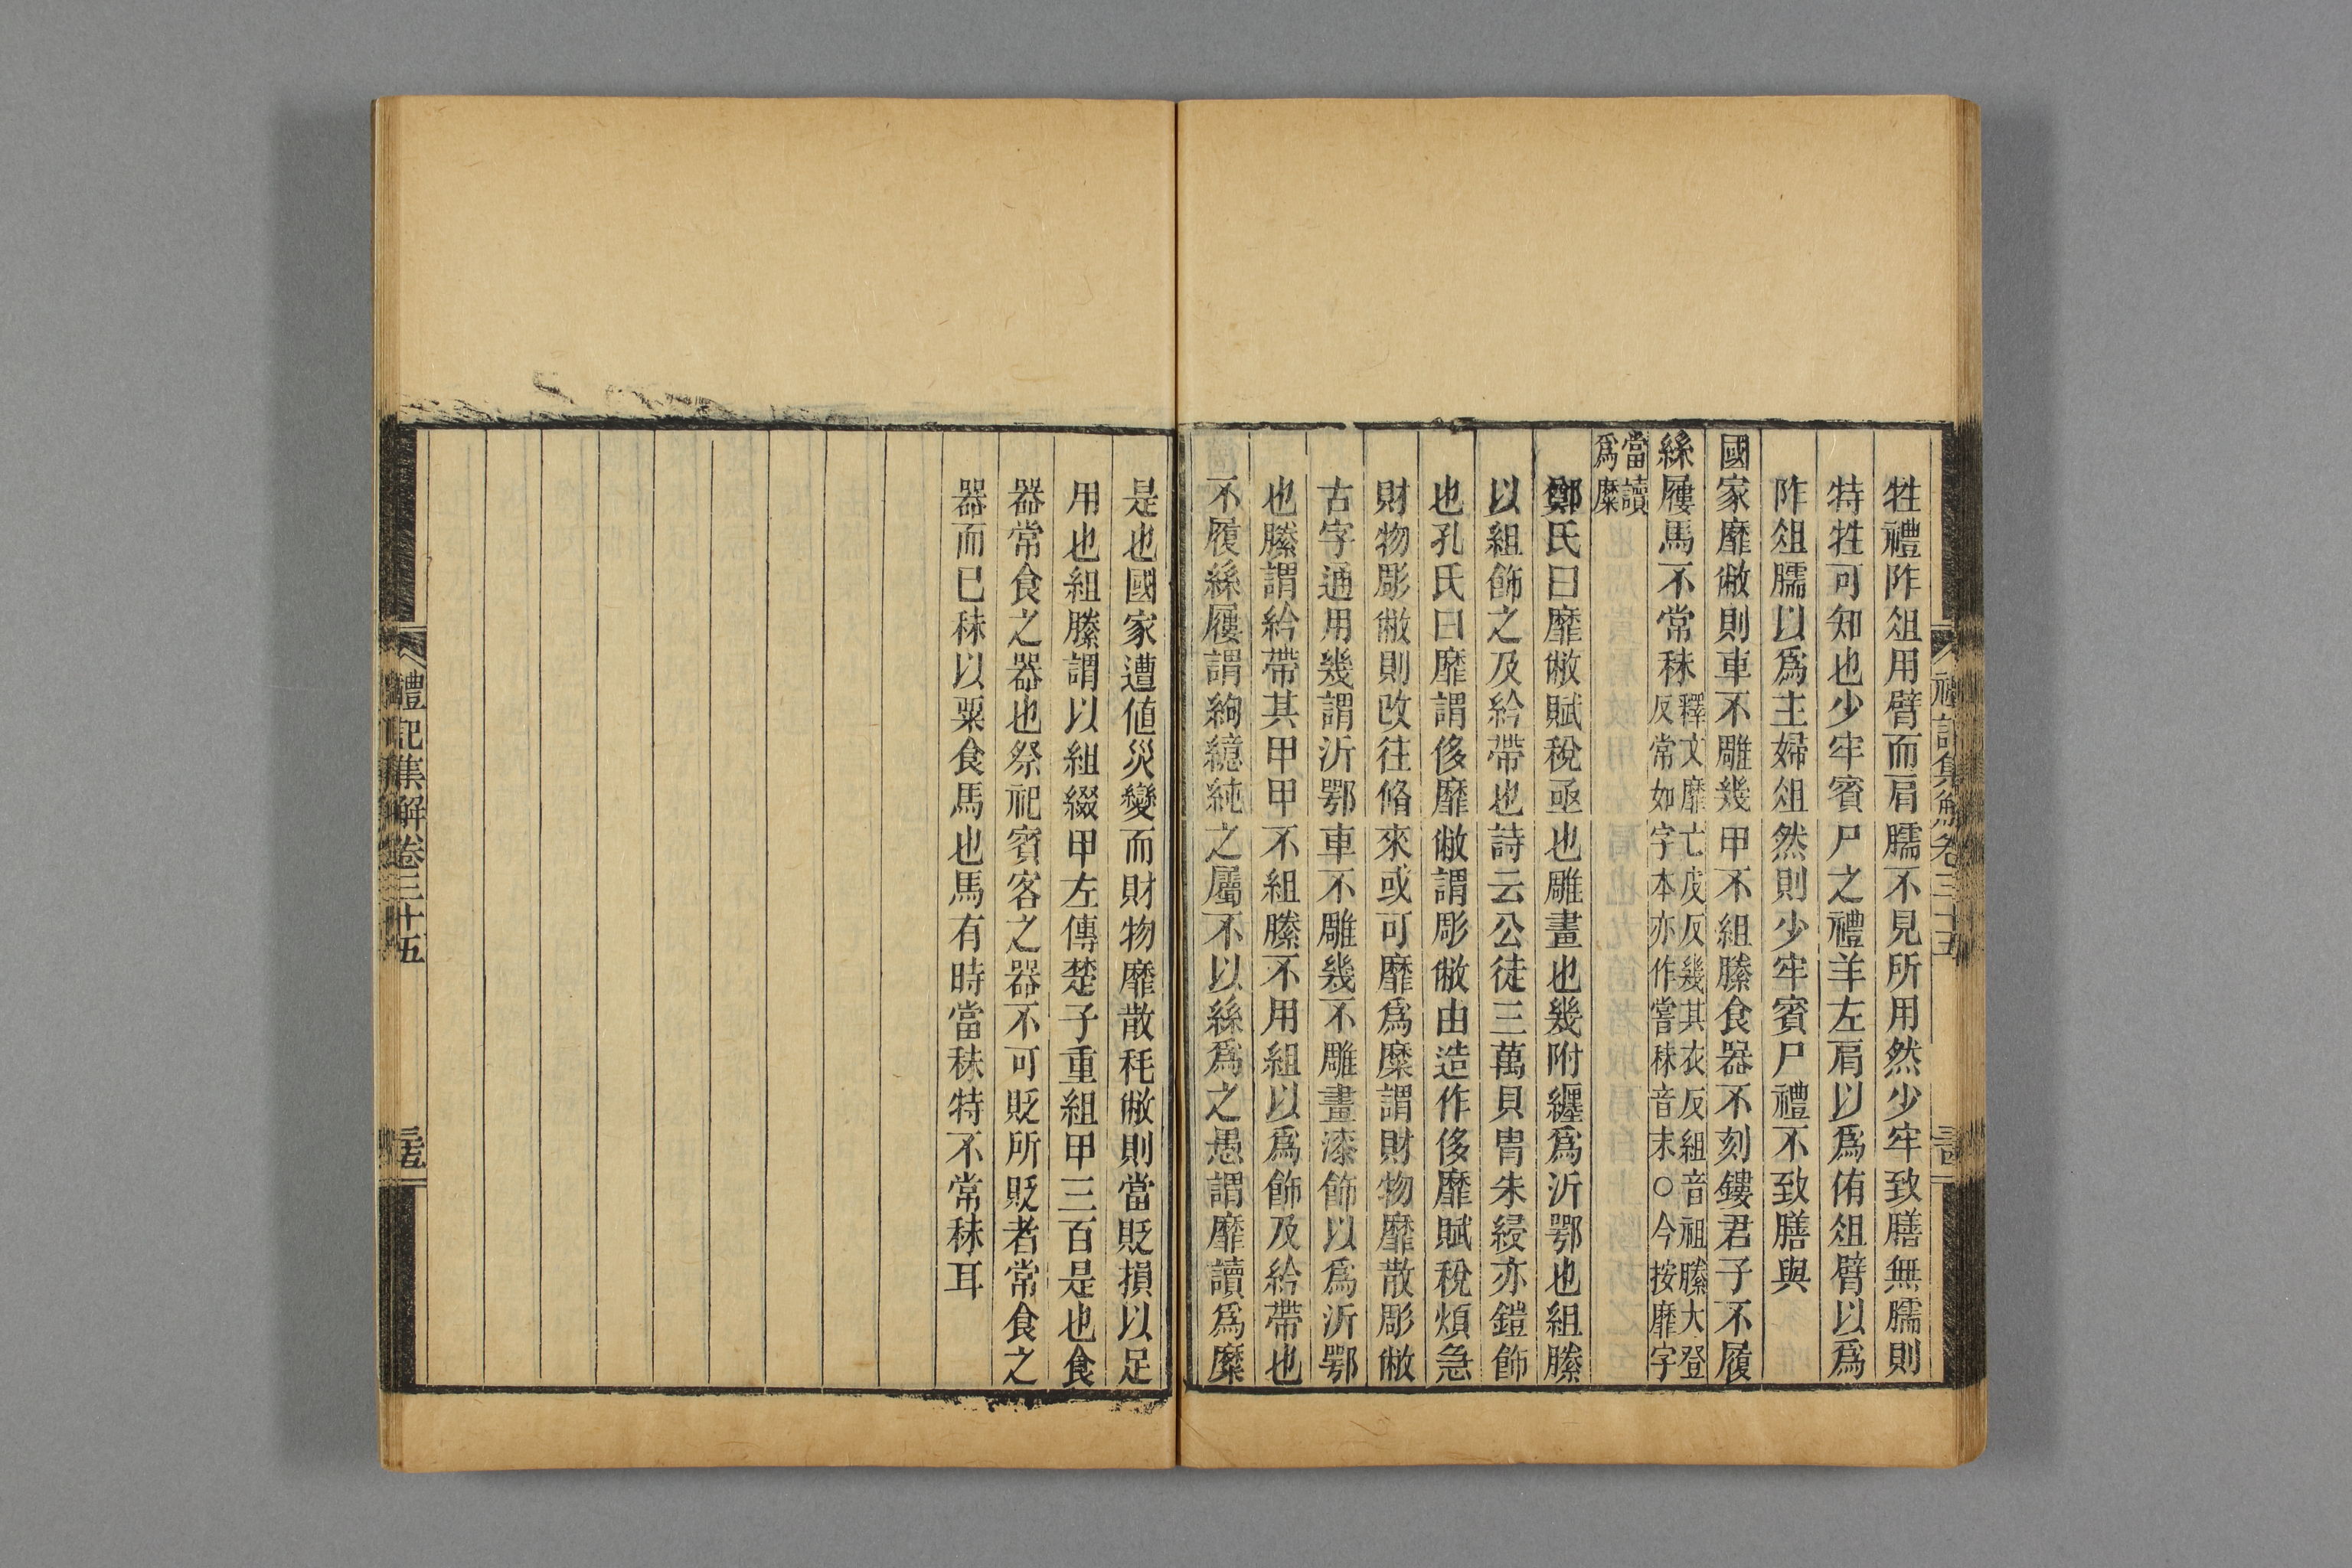 牲禮阼俎用臂而肩臑不見所用然少牢致膳無臑則
特牲可知也少牢賓尸之禮羊左肩以爲侑俎臂以爲
阼俎臑以爲主婦俎然則少牢賓尸禮不致膳與
國家靡敝則車不雕幾甲不組縢食器不刻鏤君子不履
絲屨馬不常秣釋文靡亡皮反幾其衣反組音祖縢大登
反常如字本亦作嘗秣音末○今按靡字
當讀
爲糜
鄭氏曰靡敝賦稅亟也雕畫也幾附纏爲沂鄂也組縢
以組飾之及紟帶也詩云公徒三萬貝胄朱綅亦鎧飾
也孔氏曰靡謂侈靡敝謂彫敝由造作侈靡賦稅煩急
財物彫敝則改往脩來或可靡爲糜謂財物靡散彫敝
古字通用幾謂沂鄂車不雕幾不雕畫漆飾以爲沂鄂
也縢謂紟帶其甲甲不組縢不用組以爲飾及紟帶也
不履絲屨謂絇繶純之屬不以絲爲之愚謂靡讀爲糜
是也國家遭値災變而財物靡散秏敝則當貶損以足
用也組縢謂以組綴甲左傳楚子重組甲三百是也食
器常食之器也祭祀賓客之器不可貶所貶者常食之
器而已秣以粟食馬也馬有時當秣特不常秣耳
禮記集解卷三十五
三五
禮記集解卷三十五
三四